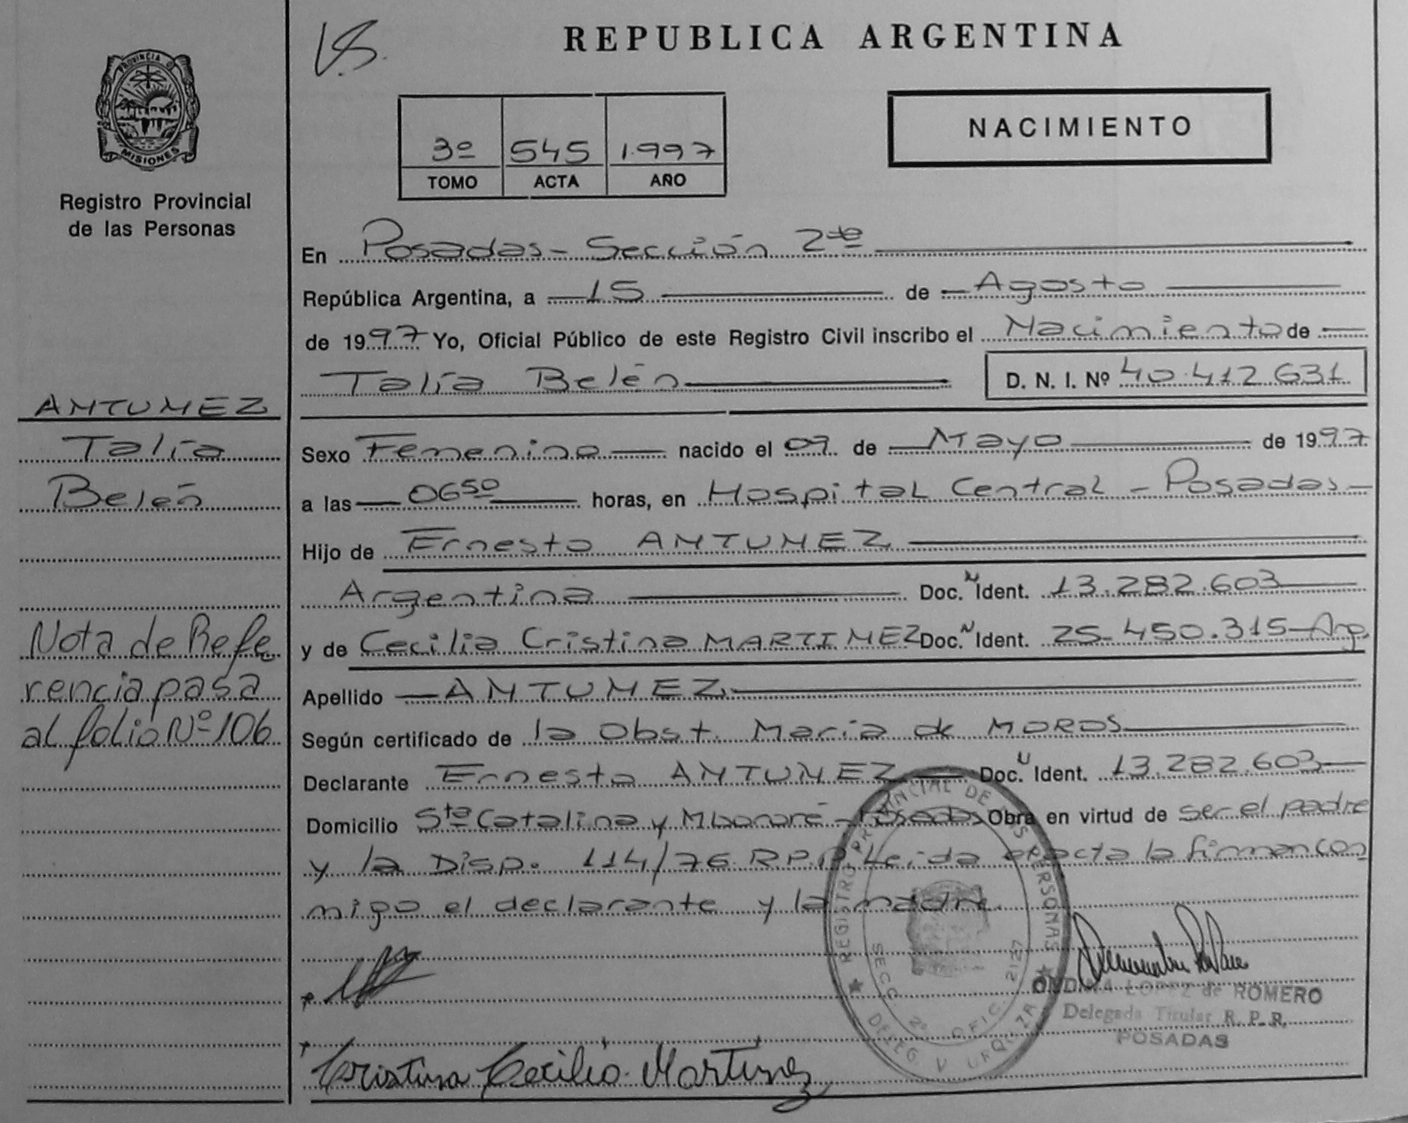 REPUBLICA ARGENTINA
PROVINCIA DE
MISIONES
Registro Provincial
de las Personas
3º 545 1.997
TOMO ACTA AÑO
NACIMIENTO
En Posadas - Sección 2da
República Argentina, a 15 de Agosto
de 1997 Yo, Oficial Público de este Registro Civil inscribo el Nacimiento de
Talía Belén D. N. I. Nº 40.412.631
ANTUNEZ
Talía
Belén
Nota de Refe
rencia pasa
al folio Nº 106
Sexo Femenino nacido el 09 de Mayo de 1997
a las 06 50 horas, en Hospital Central - Posadas -
Hijo de Ernesto ANTUNEZ
Argentina Doc. Ident. 13.282.603
y de Cecilia Cristina MARTINEZ Doc. Ident. 25.450.315 - Arg.
Apellido ANTUNEZ
Según certificado de la Obst. María de MOROS
Declarante Ernesto ANTUNEZ Doc. Ident. 13.282.603
Domicilio Sta Catalina y Mbororé - Posadas Obra en virtud de ser el padre
y la Disp. 114/76 R.P.P. Leida el acta la firman con
migo el declarante y la madre.
REGISTRO PROVINCIAL DE LAS PERSONAS
SECC. 2º OFIC. 2127
DELEG. V. URQUIZA
LOPEZ de ROMERO
Delegada Titular R. P. R.
POSADAS
Cristina Cecilia Martinez